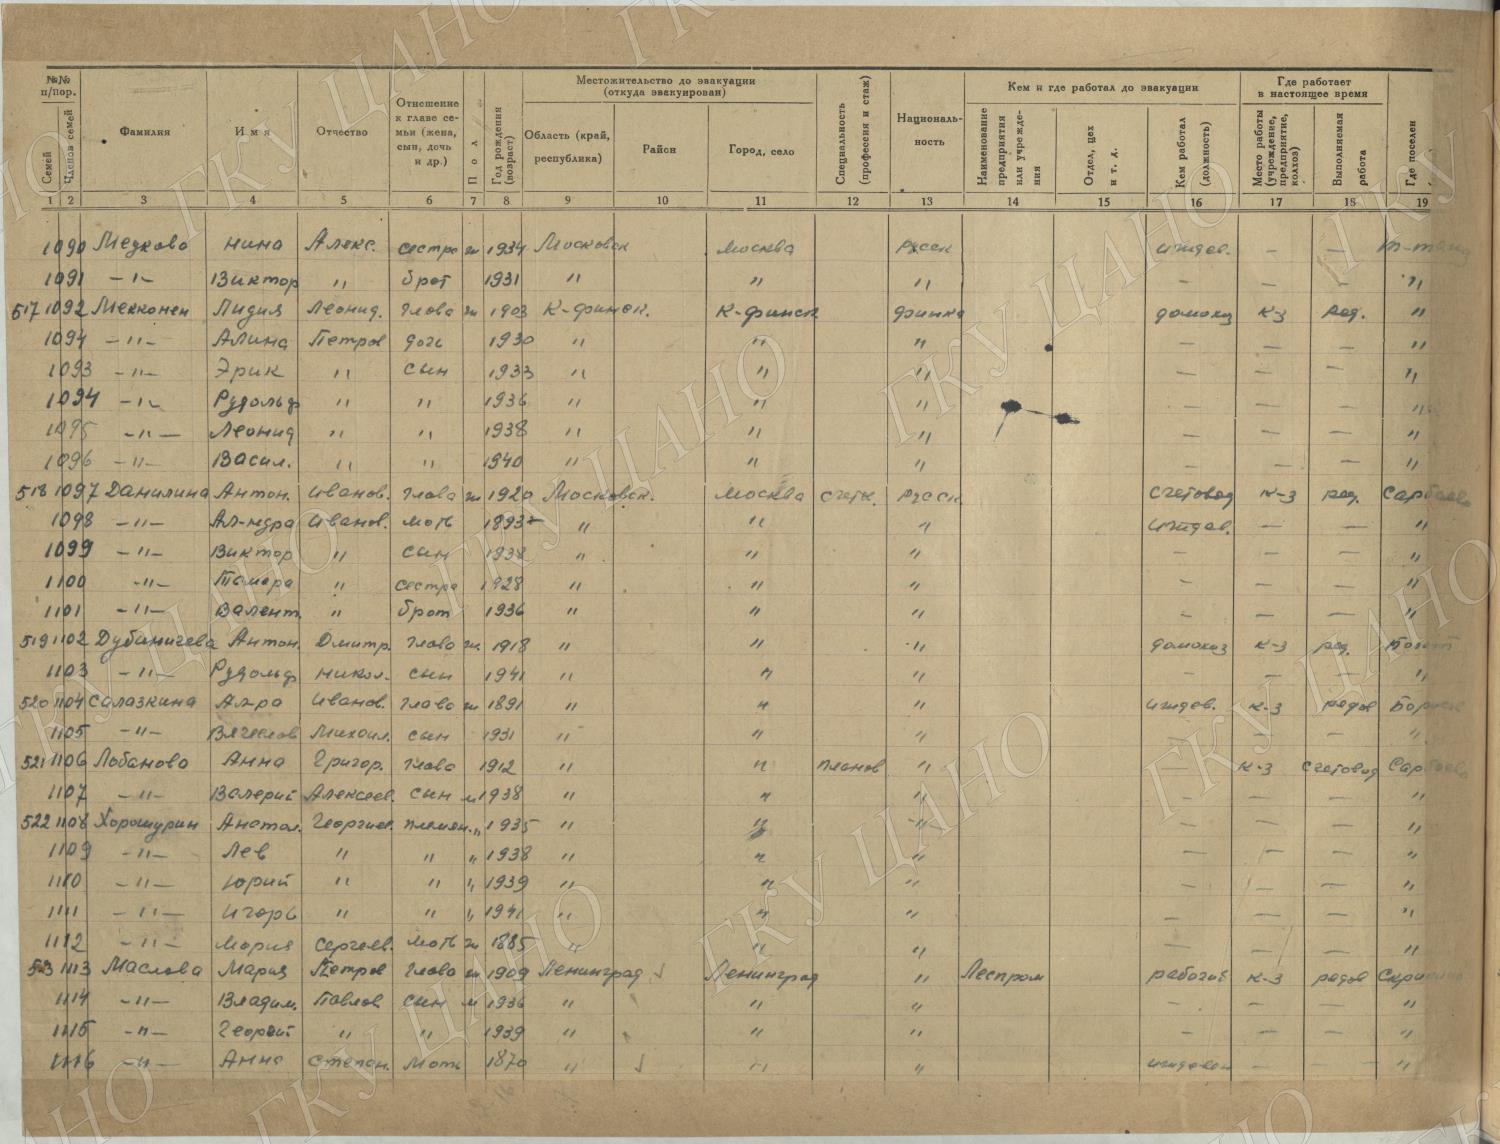 №№ п/пор. Местожительство до эвакуации (откуда эвакуирован) Кем и где работал до эвакуации Где работает в настоящее время
Семей Членов семей Фамилия Имя Отчество Отношение к главе семьи (жена, сын, дочь и др.) Пол Год рождения (возраст) Область (край, республика) Район Город, село Специальность (профессия и стаж) Националь-ность Наименование предприятия или учрежде-ния Отдел, цех и т. д. Кем работал (должность) Место работы (учреждение, предприятие, колхоз) Выполняемая работа Где поселен
1 2 3 4 5 6 7 8 9 10 11 12 13 14 15 16 17 18 19
1090 Медкова Нина Алекс. сестра ж 1934 Московск Москва Русск иждев. — —
1091 —"— Виктор " брот 1931 " " " — — — "
517 1092 Мекконен Лидия Леонид. глава ж 1903 К-финск. К-финск финка домохоз к-з ряд. "
1094 —"— Алина Петров дочь 1930 " " " — — — "
1093 —"— Эрик " сын 1933 " " " — — — "
1094 —"— Рудольф " " 1936 " " " — — — "
1095 —"— Леонид " " 1938 " " " — — — "
1096 —"— Васил. " " 1940 " " " — — — "
518 1097 Данилина Антон. Иванов. глава ж 1920 Московск. Москва счетн. Русск счетовод к-з ряд. Сарбаево
1098 —"— Ал-ндра Иванов. мать 1893 " " " иждев. — — "
1099 —"— Виктор " сын 1938 " " " — — — "
1100 —"— Тамара " сестра 1928 " " " — — — "
1101 —"— Валент. " брат 1936 " " " — — — "
519 1102 Дубиничева Антон. Дмитр. глава ж. 1918 " " " домохоз к-з ряд.
1103 —"— Рудольф Никол. сын 1941 " " " — — — "
520 1104 Салазкина Ал-ра Иванов. глава ж 1891 " " " иждев. к-з рядов
1105 —"— Вячеслов Михаил. сын 1931 " " " — — — "
521 1106 Лобанова Анна Григор. глава 1912 " " планов " — к-з счетовод Сарбаево
1107 —"— Валерий Алексеев. сын м 1938 " " " — — — "
522 1108 Хорошурин Анатол. Георгиев. племян. " 1935 " " " — — — "
1109 —"— Лев " " " 1938 " " " — — — "
1110 —"— Юрий " " " 1939 " " " — — — "
1111 —"— Игорь " " " 1941 " " " — — — "
1112 —"— Мария Сергеев. мать ж 1885 " " " — — — "
523 1113 Маслова Мария Петров глава ж 1909 Ленинград Ленинград " Леспром рабочий к-з рядов
1114 —"— Владим. Павлов сын м 1936 " " " — — — "
1115 —"— Георгий " " 1939 " " " — — — "
1116 —"— Анна Степан. Мать 1870 " " " иждевен — — "
ГКУ ЦАНО